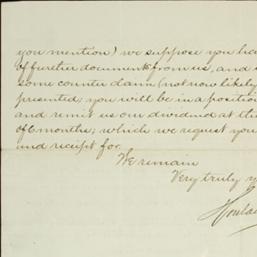 you mention) we suppose you ha
of further document from us, and
some counter claim (not now likely
presented, you will be in a position
and remit us our dividend at the
of 6 months; which we request you
and receipt for.
We remain
Very truly y